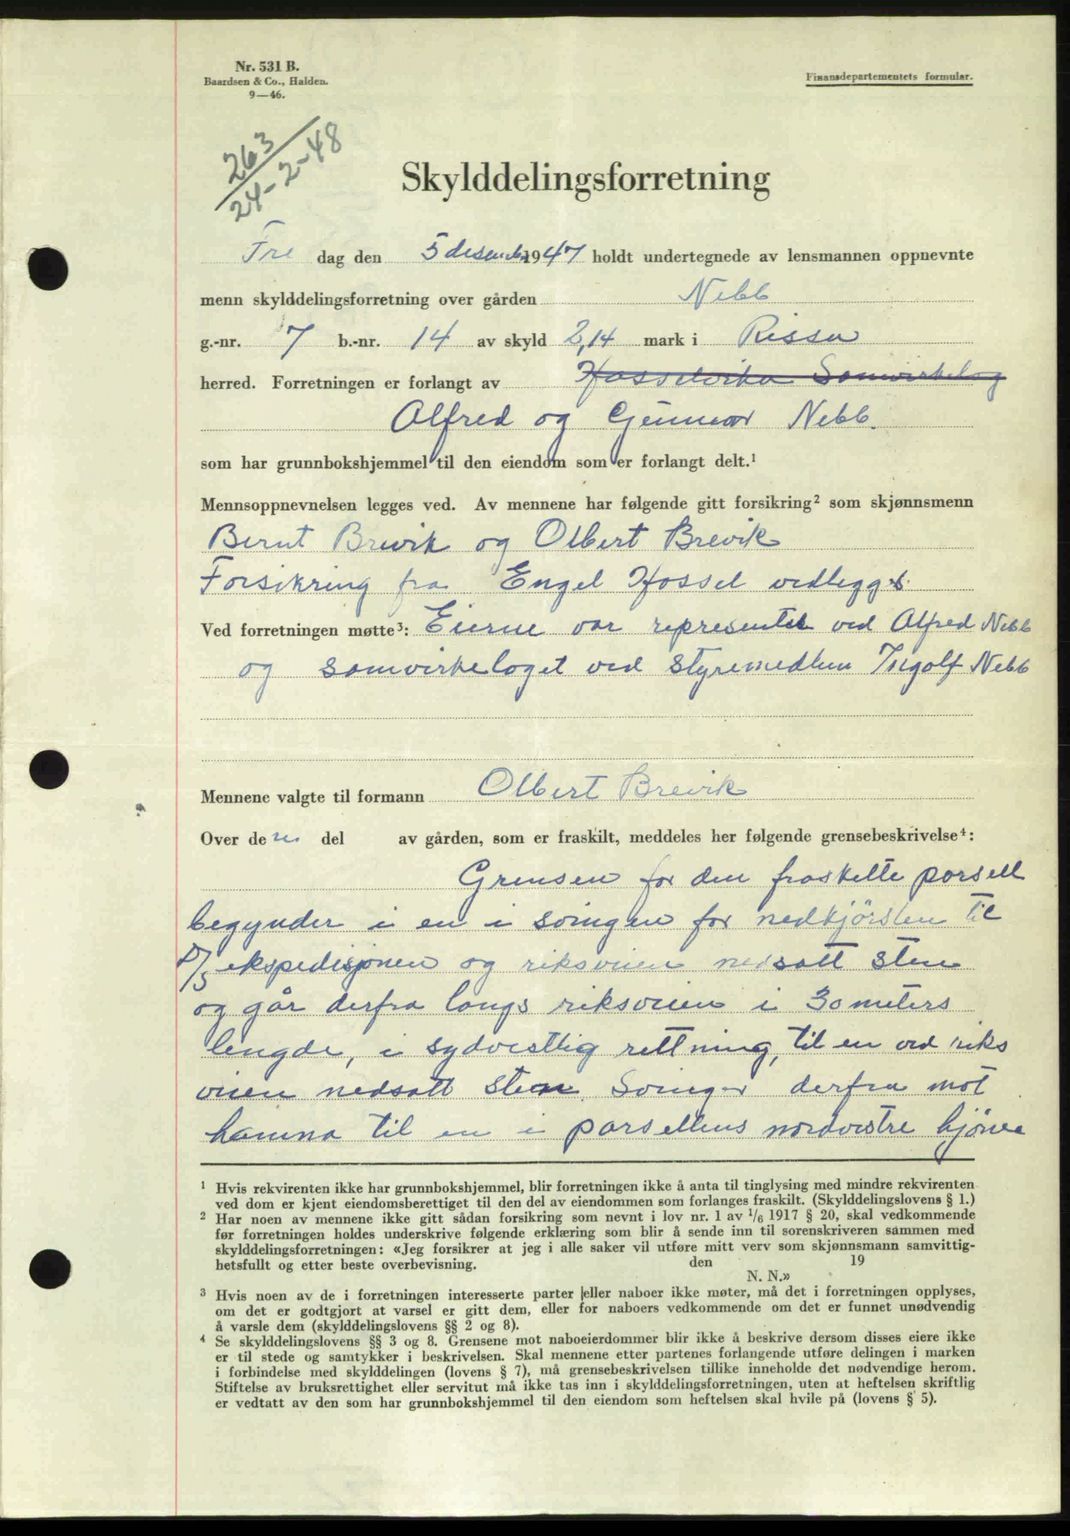 Nr. 531 B.
Baardsen & Co., Halden.
9—46.
Finansdepartementets formular.
263
24-2-48
Skylddelingsforretning
Fre dag den 5 desember 1947 holdt undertegnede av lensmannen oppnevnte
menn skylddelingsforretning over gården Nebb
g.-nr. 7 b.-nr. 14 av skyld 2,14 mark i Rissa
herred. Forretningen er forlangt av Hasselvika Samvirkelag
Alfred og Gunnar Nebb.
som har grunnbokshjemmel til den eiendom som er forlangt delt.¹
Mennsoppnevnelsen legges ved. Av mennene har følgende gitt forsikring² som skjønnsmenn
Bernt Brevik og Olbert Brevik
Forsikring fra Engel Hassel vedlegges.
Ved forretningen møtte³: Eierne var representet ved Alfred Nebb
og samvirkelaget ved styremedlem Ingolf Nebb
Mennene valgte til formann Olbert Brevik
Over den del av gården, som er fraskilt, meddeles her følgende grensebeskrivelse⁴:
Grensen for den fraskilte parsell
begynder i en i svingen for nedkjörslen til
D/S ekspedisjonen og riksveien nedsatt sten
og går derfra langs riksveien i 30 meters
lengde, i sydvestlig rettning, til en ved riks
veien nedsatt sten. Svinger derfra mot
hamna til en i parsellens nordvestre hjörne
¹ Hvis rekvirenten ikke har grunnbokshjemmel, blir forretningen ikke å anta til tinglysing med mindre rekvirenten
ved dom er kjent eiendomsberettiget til den del av eiendommen som forlanges fraskilt. (Skylddelingslovens § 1.)
² Har noen av mennene ikke gitt sådan forsikring som nevnt i lov nr. 1 av 1/6 1917 § 20, skal vedkommende
før forretningen holdes underskrive følgende erklæring som blir å sende inn til sorenskriveren sammen med
skylddelingsforretningen: «Jeg forsikrer at jeg i alle saker vil utføre mitt verv som skjønnsmann samvittig-
hetsfullt og etter beste overbevisning. den 19
N. N.»
³ Hvis noen av de i forretningen interesserte parter eller naboer ikke møter, må det i forretningen opplyses,
om det er godtgjort at varsel er gitt dem, eller for naboers vedkommende om det er funnet unødvendig
å varsle dem (skylddelingslovens §§ 2 og 8).
⁴ Se skylddelingslovens §§ 3 og 8. Grensene mot naboeierdommer blir ikke å beskrive dersom disses eiere ikke
er til stede og samtykker i beskrivelsen. Skal mennene etter partenes forlangende utføre delingen i marken
i forbindelse med skylddelingen (lovens § 7), må grensebeskrivelsen tillike inneholde det nødvendige herom.
Stiftelse av bruksrettighet eller servitut må ikke tas inn i skylddelingsforretningen, uten at heftelsen skriftlig
er vedtatt av den som har grunnbokshjemmel til den eiendom som heftelsen skal hvile på (lovens § 5).